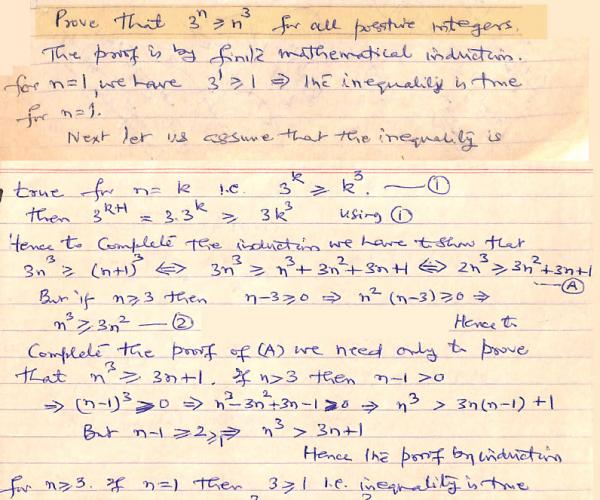 Prove that 3^n ≥ n^3 for all positive integers.
The proof is by finite mathematical induction.
for n=1, we have 3^1 ≥ 1 ⇒ the inequality is true
for n=1.
Next let us assume that the inequality is
true for n= k i.e. 3^k ≥ k^3. — ①
then 3^{k+1} = 3.3^k ≥ 3k^3 using ①
Hence to complete the induction we have to show that
3n^3 ≥ (n+1)^3 ⇔ 3n^3 ≥ n^3+3n^2+3n+1 ⇔ 2n^3 ≥ 3n^2+3n+1
— Ⓐ
But if n≥3 then n-3≥0 ⇒ n^2(n-3)≥0 ⇒
n^3 ≥ 3n^2 — ② Hence to
Complete the proof of (A) we need only to prove
that n^3 ≥ 3n+1. If n>3 then n-1>0
⇒ (n-1)^3 ≥0 ⇒ n^3-3n^2+3n-1≥0 ⇒ n^3 > 3n(n-1)+1
But n-1≥2, ⇒ n^3 > 3n+1
Hence the proof by induction
for n≥3. If n=1 then 3≥1 i.e. inequality is true